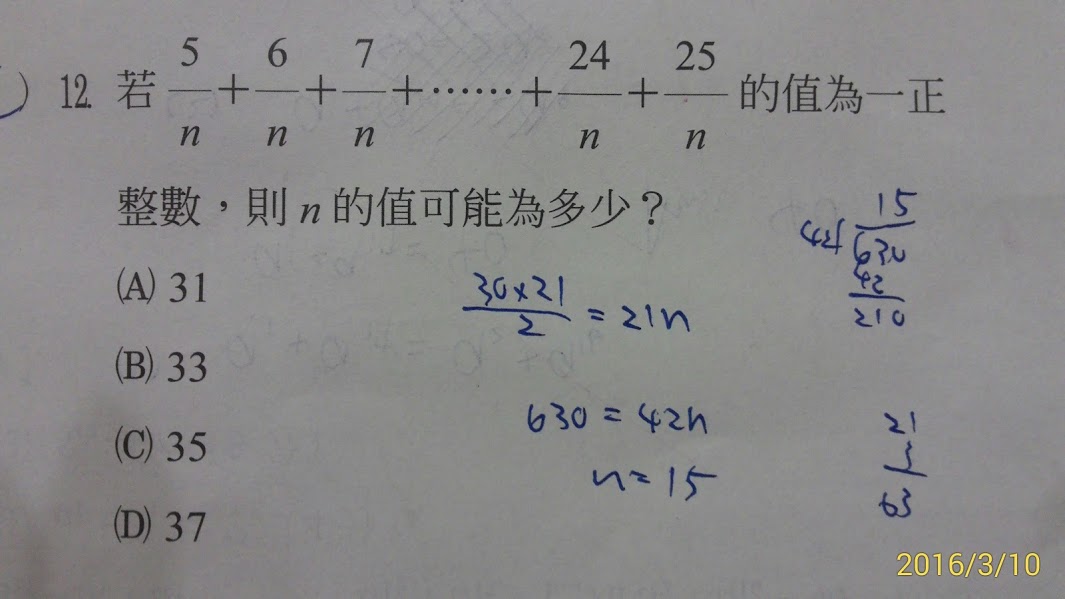 12. 若 5/n + 6/n + 7/n + …… + 24/n + 25/n 的值為一正
整數，則 n 的值可能為多少？
(A) 31
(B) 33
(C) 35
(D) 37
30×21/2 = 21n
630 = 42n
n = 15
15
42 630
42
210
21
3
63
2016/3/10